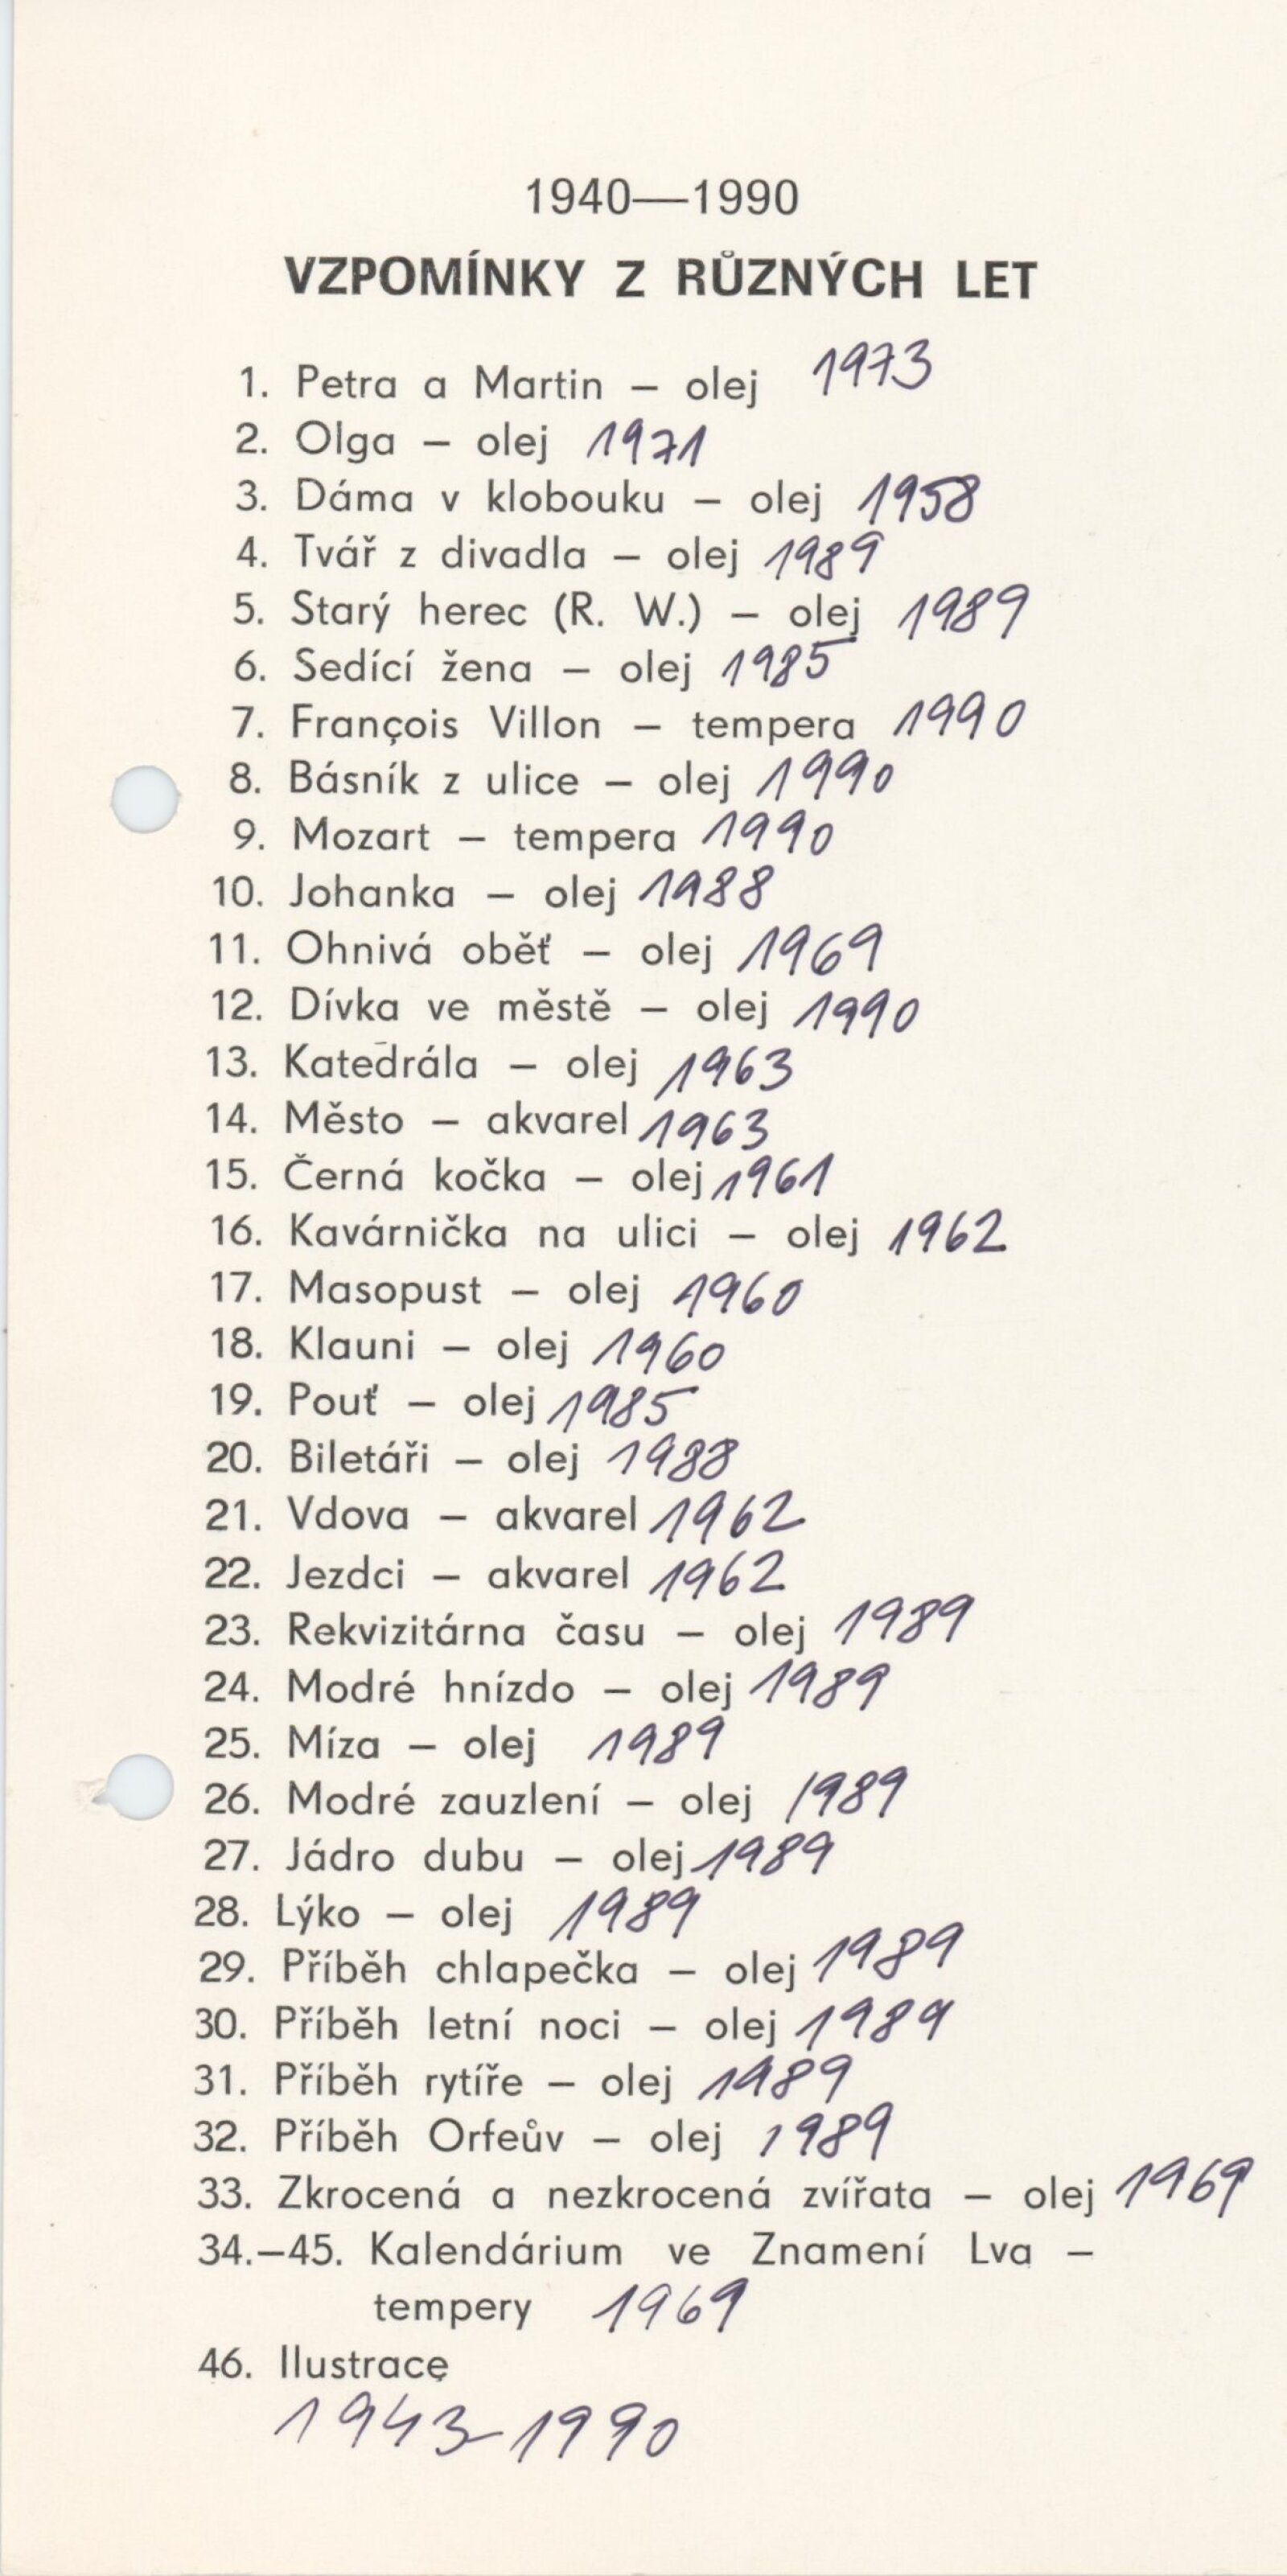 1940—1990
VZPOMÍNKY Z RŮZNÝCH LET
1. Petra a Martin – olej 1973
2. Olga – olej 1971
3. Dáma v klobouku – olej 1958
4. Tvář z divadla – olej 1989
5. Starý herec (R. W.) – olej 1989
6. Sedící žena – olej 1985
7. François Villon – tempera 1990
8. Básník z ulice – olej 1990
9. Mozart – tempera 1990
10. Johanka – olej 1988
11. Ohnivá oběť – olej 1969
12. Dívka ve městě – olej 1990
13. Katedrála – olej 1963
14. Město – akvarel 1963
15. Černá kočka – olej 1961
16. Kavárnička na ulici – olej 1962
17. Masopust – olej 1960
18. Klauni – olej 1960
19. Pouť – olej 1985
20. Biletáři – olej 1988
21. Vdova – akvarel 1962
22. Jezdci – akvarel 1962
23. Rekvizitárna času – olej 1989
24. Modré hnízdo – olej 1989
25. Míza – olej 1989
26. Modré zauzlení – olej 1989
27. Jádro dubu – olej 1989
28. Lýko – olej 1989
29. Příběh chlapečka – olej 1989
30. Příběh letní noci – olej 1989
31. Příběh rytíře – olej 1989
32. Příběh Orfeův – olej 1989
33. Zkrocená a nezkrocená zvířata – olej 1969
34.–45. Kalendárium ve Znamení Lva –
tempery 1969
46. Ilustrace
1943-1990